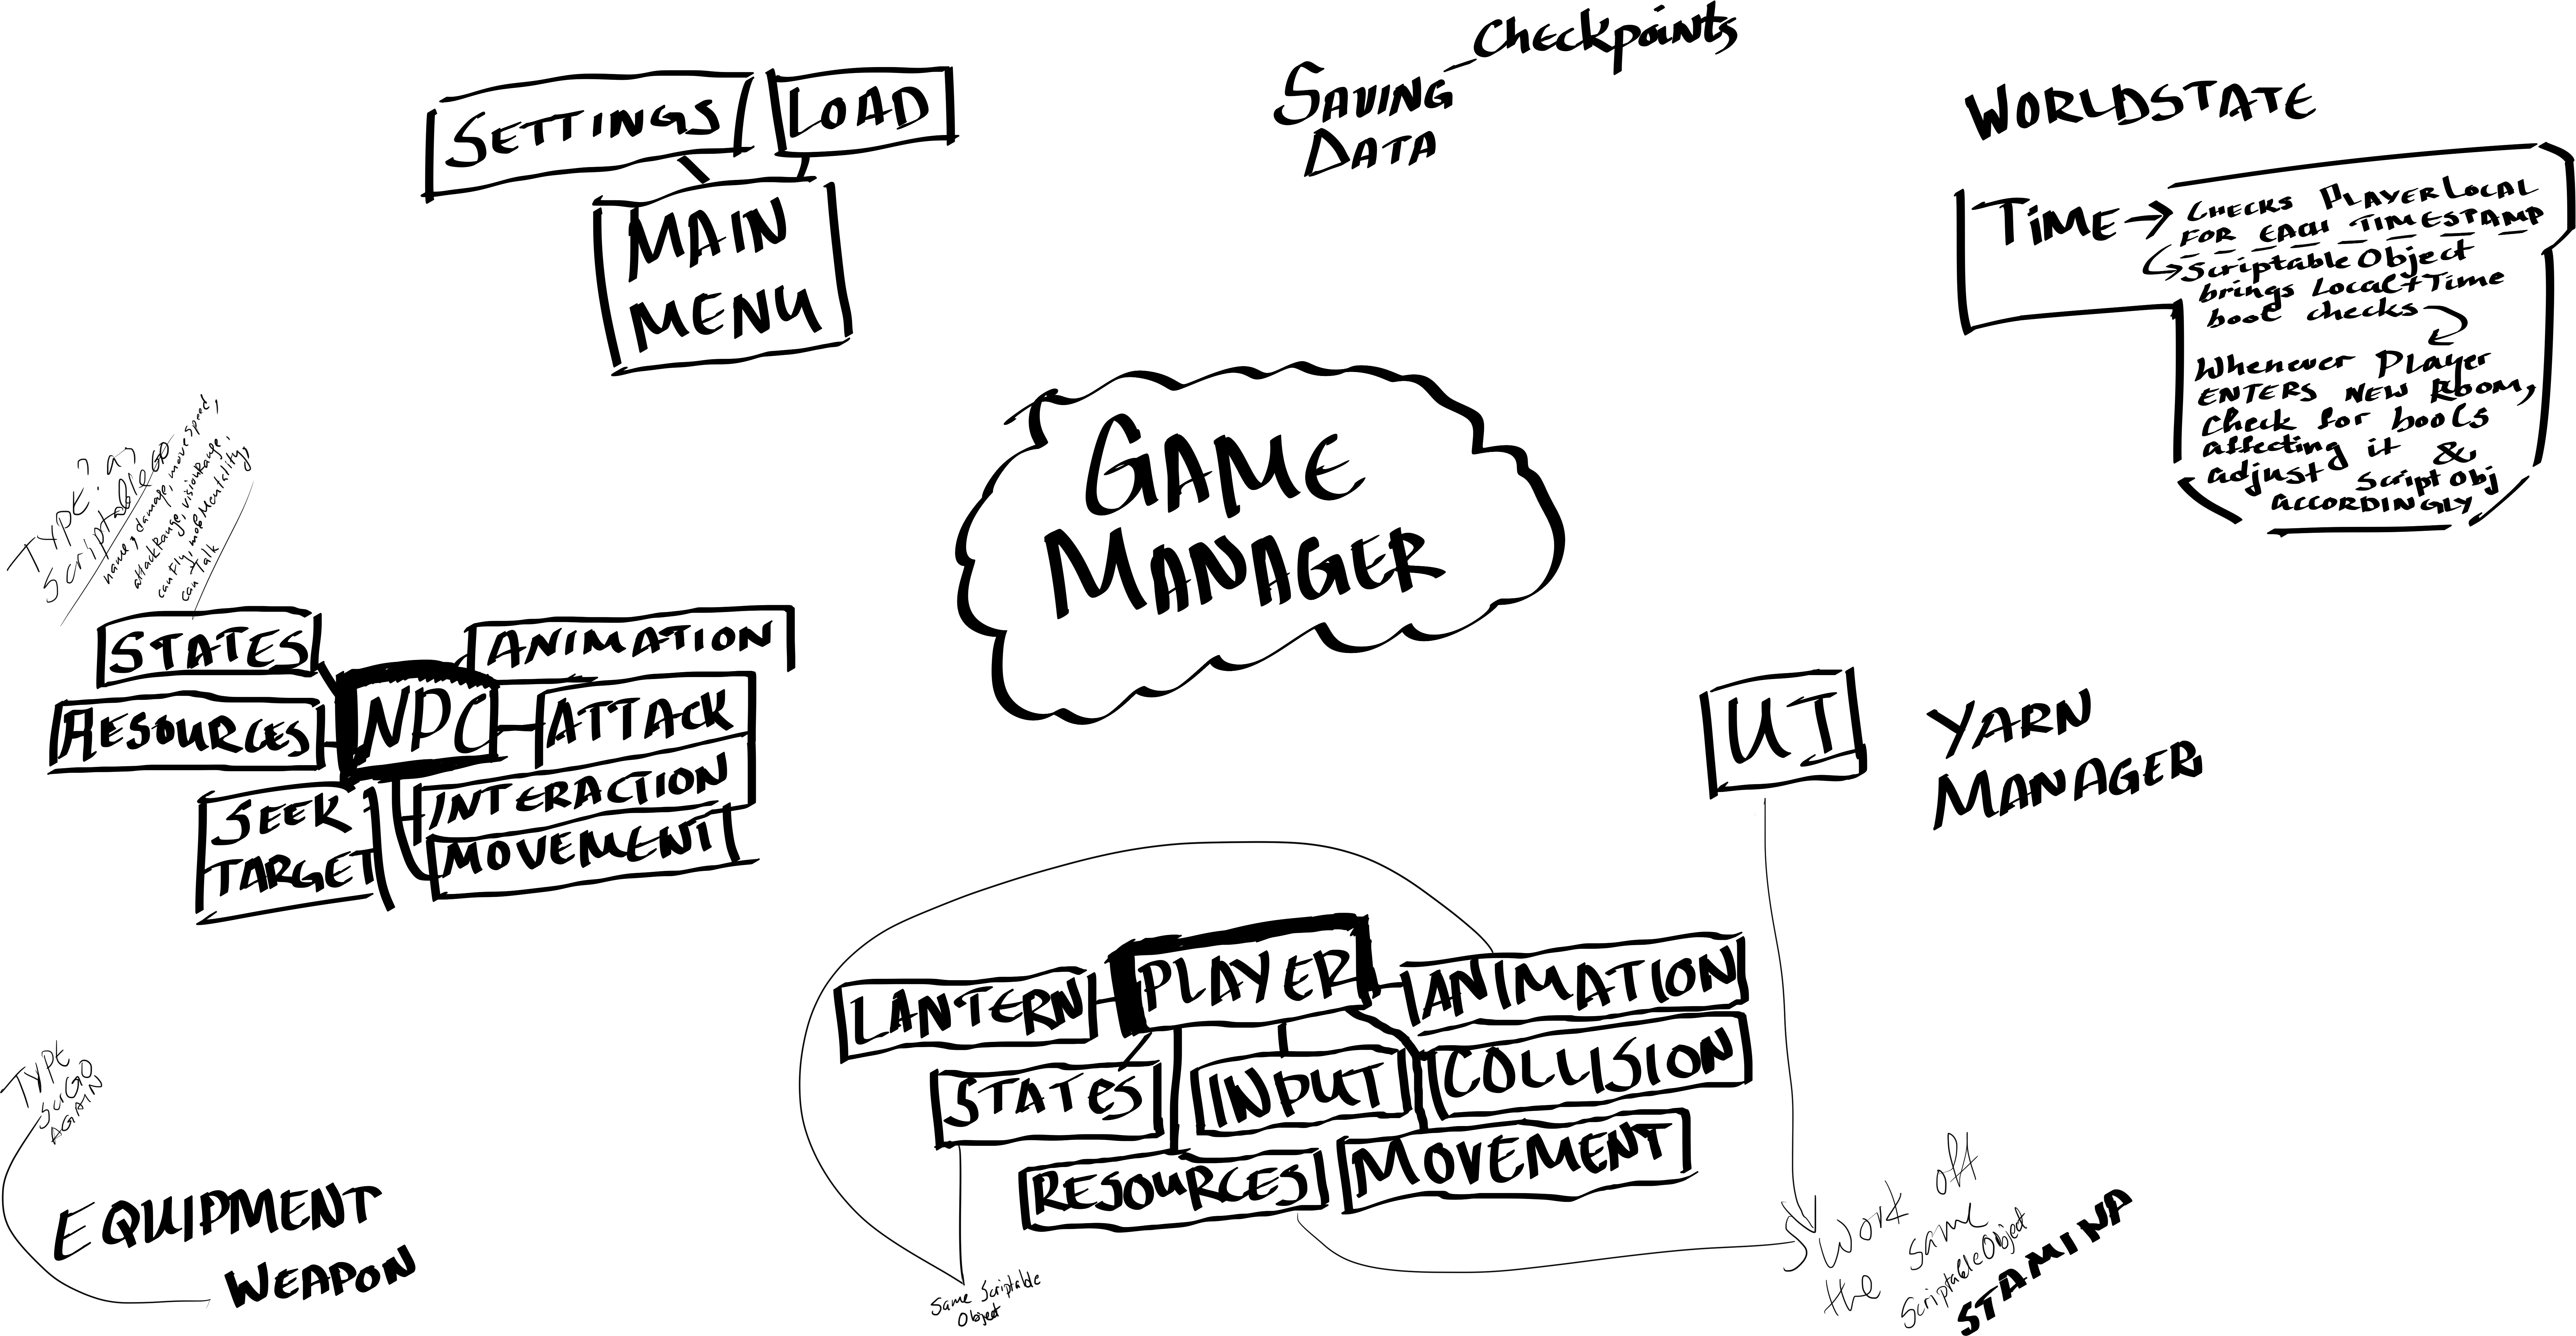 Checkpoints
SAVING
DATA
SETTINGS
LOAD
MAIN
MENU
WORLDSTATE
TIME → CHECKS PLAYERLOCAL
FOR EACH TIMESTAMP
ScriptableObject
brings Local+Time
bool checks
Whenever Player
ENTERS NEW ROOM,
check for bools
affecting it &
adjust ScriptObj
ACCORDINGLY
GAME
MANAGER
TYPE? as
Scriptable GO
name, damage, move speed,
attackRange, visionRange,
canFly, mobMentality,
can Talk
STATES
ANIMATION
RESOURCES
NPC
ATTACK
SEEK
TARGET
INTERACTION
MOVEMENT
UI
YARN
MANAGER
LANTERN
PLAYER
ANIMATION
STATES
INPUT
COLLISION
RESOURCES
MOVEMENT
TYPE
ScrGO
AGAIN
EQUIPMENT
WEAPON
Same Scriptable
Object
Work off
the same
ScriptableObject
STAMINA